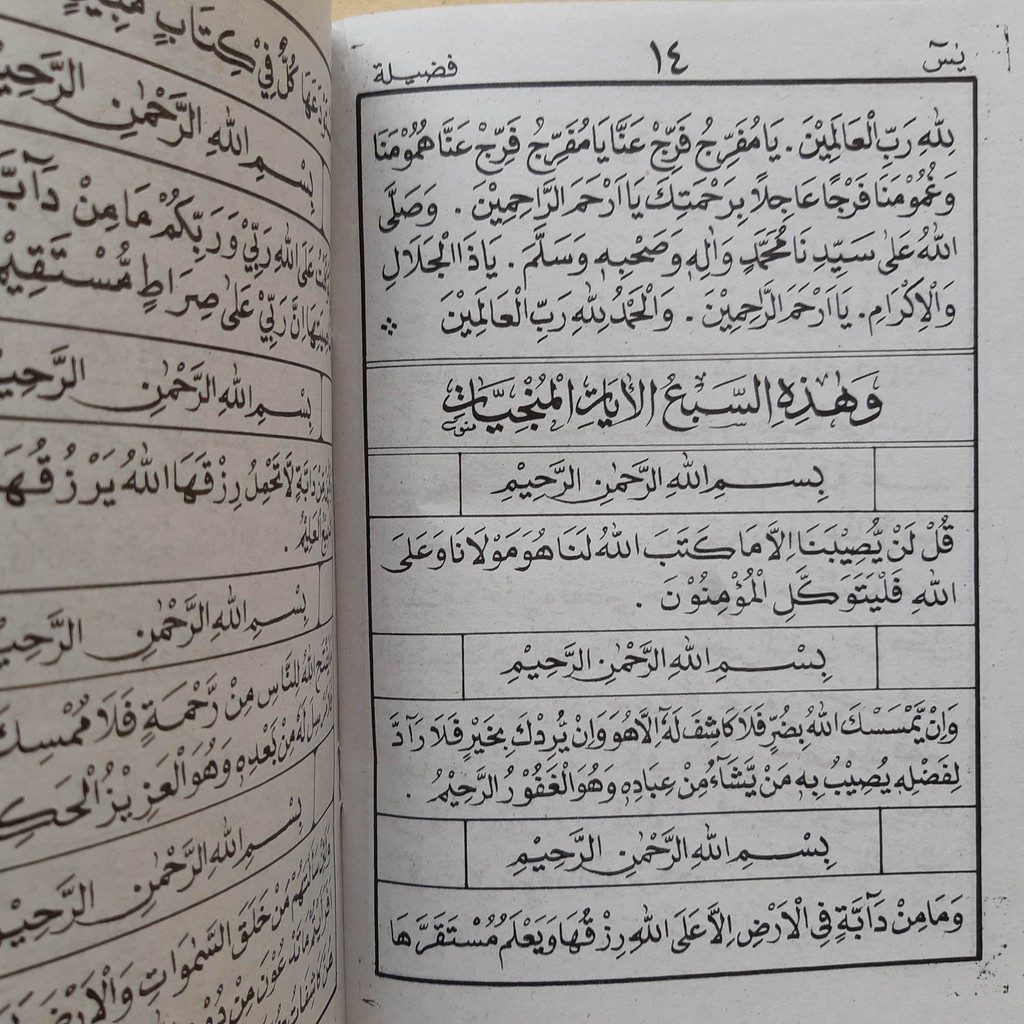 يسٓ ١٤ فضيلة
لِلّٰهِ رَبِّ الْعَالَمِيْنَ . يَا مُفَرِّجُ فَرِّجْ عَنَّا يَا مُفَرِّجُ فَرِّجْ عَنَّا هُمُوْمَنَا
وَغُمُوْمَنَا فَرْجًا عَاجِلًا بِرَحْمَتِكَ يَا اَرْحَمَ الرَّاحِمِيْنَ . وَصَلَّى
اللّٰهُ عَلٰى سَيِّدِنَا مُحَمَّدٍ وَاٰلِهٖ وَصَحْبِهٖ وَسَلَّمَ . يَا ذَا الْجَلَالِ
وَالْاِكْرَامِ . يَا اَرْحَمَ الرَّاحِمِيْنَ . وَالْحَمْدُ لِلّٰهِ رَبِّ الْعَالَمِيْنَ
وَهٰذِهِ السَّبْعُ الْاٰيَاتِ الْمُنْجِيَّاتِ
بِسْمِ اللّٰهِ الرَّحْمٰنِ الرَّحِيْمِ
قُلْ لَنْ يُّصِيْبَنَا اِلَّا مَا كَتَبَ اللّٰهُ لَنَا هُوَ مَوْلَانَا وَعَلَى
اللّٰهِ فَلْيَتَوَكَّلِ الْمُؤْمِنُوْنَ .
بِسْمِ اللّٰهِ الرَّحْمٰنِ الرَّحِيْمِ
وَاِنْ يَّمْسَسْكَ اللّٰهُ بِضُرٍّ فَلَا كَاشِفَ لَهٗٓ اِلَّا هُوَ وَاِنْ يُّرِدْكَ بِخَيْرٍ فَلَا رَآدَّ
لِفَضْلِهٖ يُصِيْبُ بِهٖ مَنْ يَّشَآءُ مِنْ عِبَادِهٖ وَهُوَ الْغَفُوْرُ الرَّحِيْمُ .
بِسْمِ اللّٰهِ الرَّحْمٰنِ الرَّحِيْمِ
وَمَا مِنْ دَآبَّةٍ فِى الْاَرْضِ اِلَّا عَلَى اللّٰهِ رِزْقُهَا وَيَعْلَمُ مُسْتَقَرَّهَا
كُلٌّ فِيْ كِتَابٍ مُّبِيْنٍ
بِسْمِ اللّٰهِ الرَّحْمٰنِ
عَلَى اللّٰهِ رَبِّيْ وَرَبِّكُمْ مَا مِنْ
اِنَّ رَبِّيْ عَلٰى صِرَاطٍ مُّسْتَقِيْمٍ
بِسْمِ اللّٰهِ الرَّحْمٰنِ
لَّا تَحْمِلُ رِزْقَهَا اللّٰهُ يَرْزُقُهَا
الْعَلِيْمُ .
بِسْمِ اللّٰهِ الرَّحْمٰنِ
اللّٰهُ لِلنَّاسِ مِنْ رَّحْمَةٍ فَلَا مُمْسِكَ
لَهٗ مِنْ بَعْدِهٖ وَهُوَ الْعَزِيْزُ
بِسْمِ اللّٰهِ الرَّحْمٰنِ
مَنْ خَلَقَ السَّمٰوَاتِ